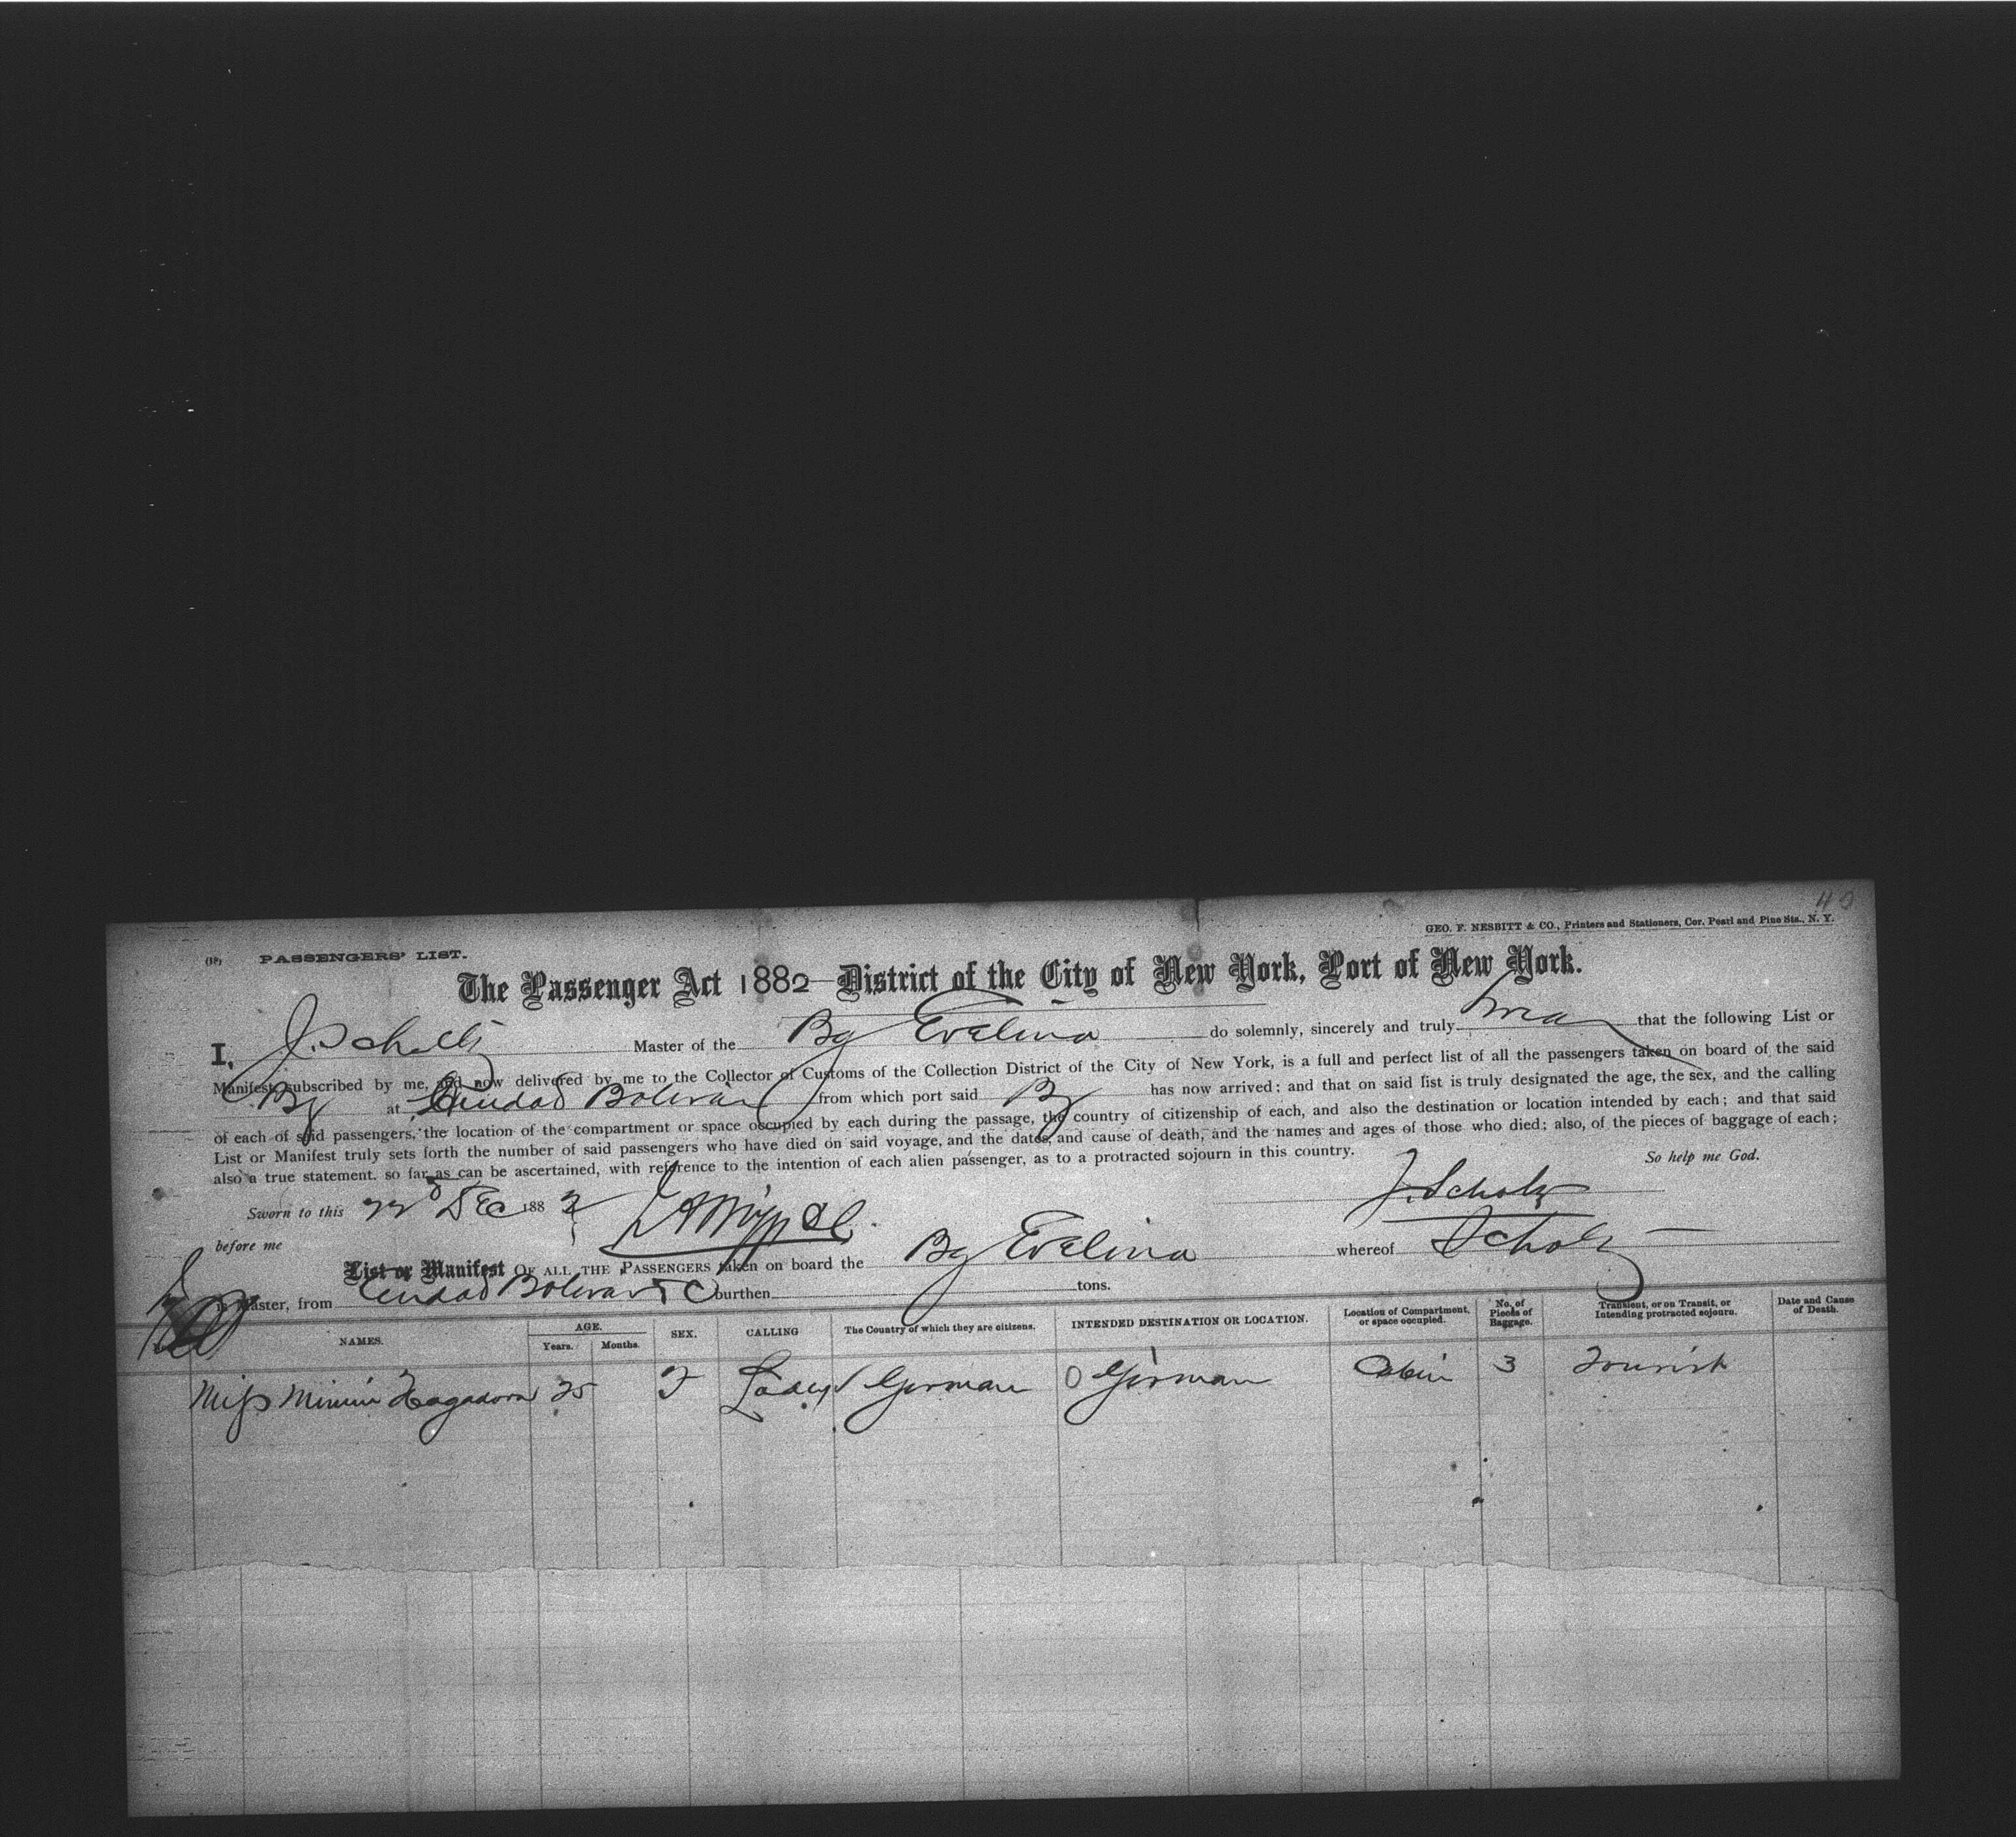 40
GEO. F. NESBITT & CO., Printers and Stationers, Cor. Pearl and Pine Sts., N. Y.
PASSENGERS' LIST.
The Passenger Act 1882 District of the City of New York, Port of New York.
I, J. Scholtz Master of the Bg Evelina do solemnly, sincerely and truly that the following List or
Manifest, subscribed by me, and now delivered by me to the Collector of Customs of the Collection District of the City of New York, is a full and perfect list of all the passengers taken on board of the said
Bg at Ciudad Bolivar from which port said Bg has now arrived; and that on said list is truly designated the age, the sex, and the calling
of each of said passengers, the location of the compartment or space occupied by each during the passage, the country of citizenship of each, and also the destination or location intended by each; and that said
List or Manifest truly sets forth the number of said passengers who have died on said voyage, and the dates, and cause of death, and the names and ages of those who died; also, of the pieces of baggage of each;
also a true statement. so far as can be ascertained, with reference to the intention of each alien passenger, as to a protracted sojourn in this country. So help me God.
Sworn to this 22d Dec 1882 J. Scholtz
before me
List or Manifest OF ALL THE PASSENGERS taken on board the Bg Evelina whereof Scholtz
is Master, from Ciudad Bolivar burthen tons.
NAMES. AGE. Years. Months. SEX. CALLING The Country of which they are citizens. INTENDED DESTINATION OR LOCATION. Location of Compartment, or space occupied. No. of Pieces of Baggage. Transient, or on Transit, or Intending protracted sojourn. Date and Cause of Death.
Miss Minnie Hagadorn 25 F Lady German German Cabin 3 Tourist